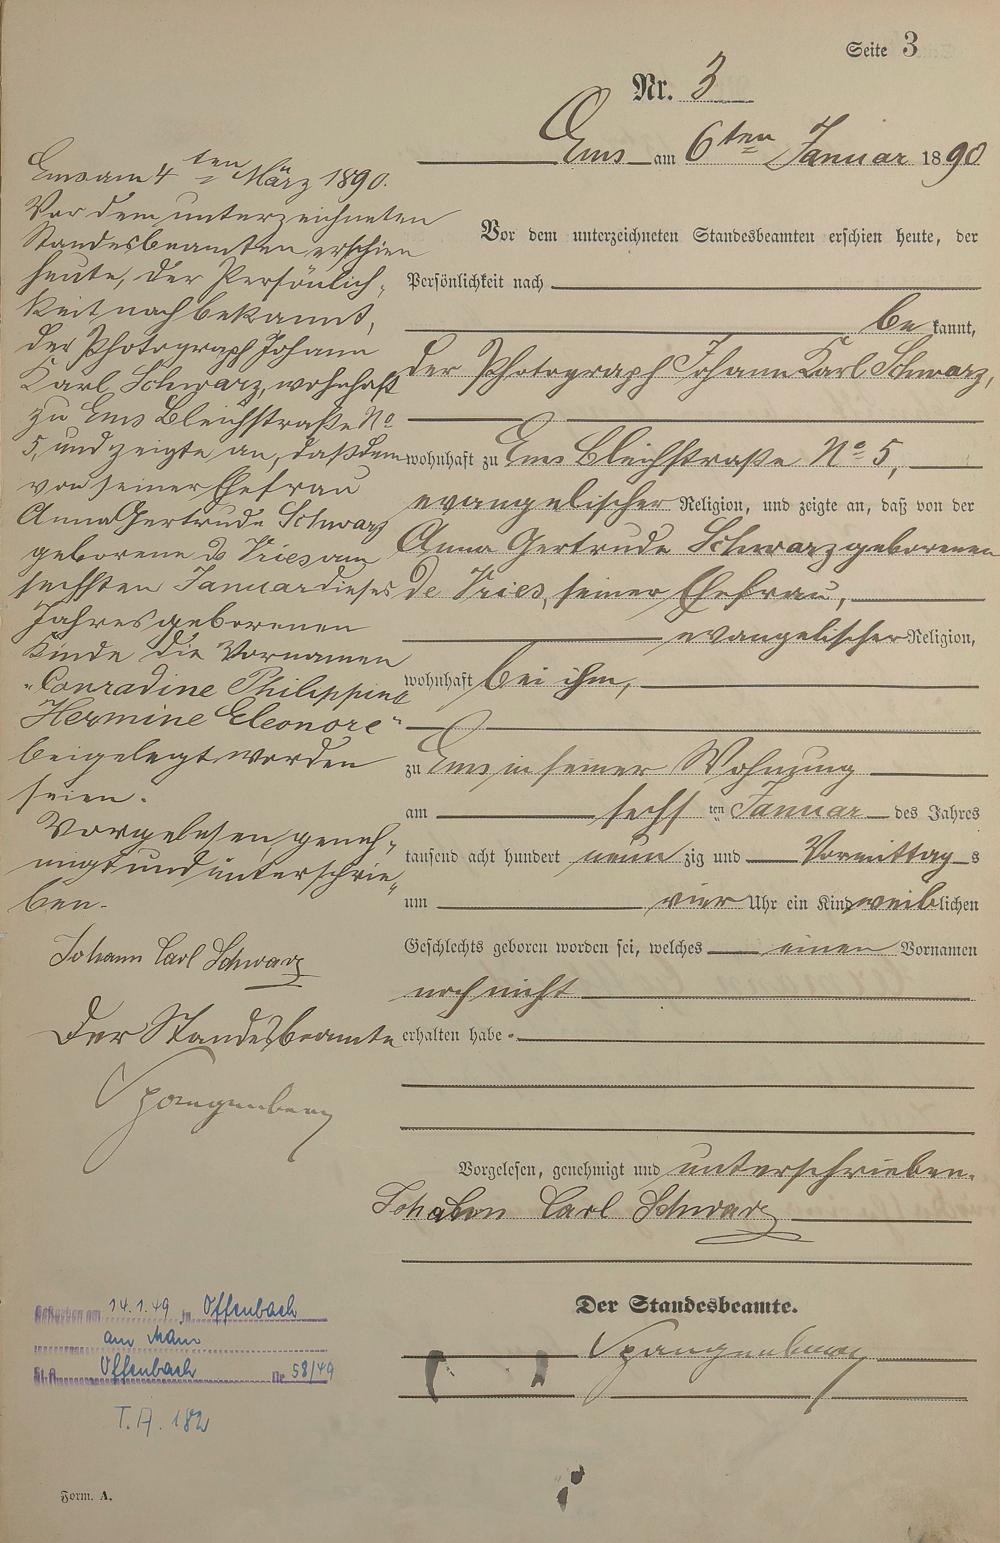 Seite 3
Nr. 3
Ems am 6ten Januar 1890
Vor dem unterzeichneten Standesbeamten erschien heute, der
Persönlichkeit nach
be kannt,
der Photograph Johann Karl Schwarz,
wohnhaft zu Ems Bleichstraße No 5,
evangelischer Religion, und zeigte an, daß von der
Anna Gertrude Schwarz geborenen
de Vries, seiner Ehefrau,
evangelischer Religion,
wohnhaft bei ihm,
zu Ems in seiner Wohnung
am sechs ten Januar des Jahres
tausend acht hundert neun zig und Vormittag s
um vier Uhr ein Kind weiblichen
Geschlechts geboren worden sei, welches einen Vornamen
noch nicht
erhalten habe.
Vorgelesen, genehmigt und unterschrieben.
Johann Carl Schwarz
Der Standesbeamte.
Spangenberg
Ems am 4ten März 1890.
Vor dem unterzeichneten
Standesbeamten erschien
heute, der Persönlich-
keit nach bekannt,
der Photograph Johann
Karl Schwarz, wohnhaft
zu Ems Bleichstraße No
5, und zeigte an, daß dem
von seiner Ehefrau
Anna Gertrude Schwarz
geborene de Vries am
sechsten Januar dieses
Jahres geborenen
Kinde die Vornamen
"Conradine Philippine
Hermine Eleonore"
beigelegt worden
seien.
Vorgelesen, geneh-
migt und unterschrie-
ben.
Johann Carl Schwarz
Der Standesbeamte
Spangenberg
Gestorben am 14.1.49 in Offenbach
am Main
St. A. Offenbach Nr. 58/49
T.A. 182
Form. A.